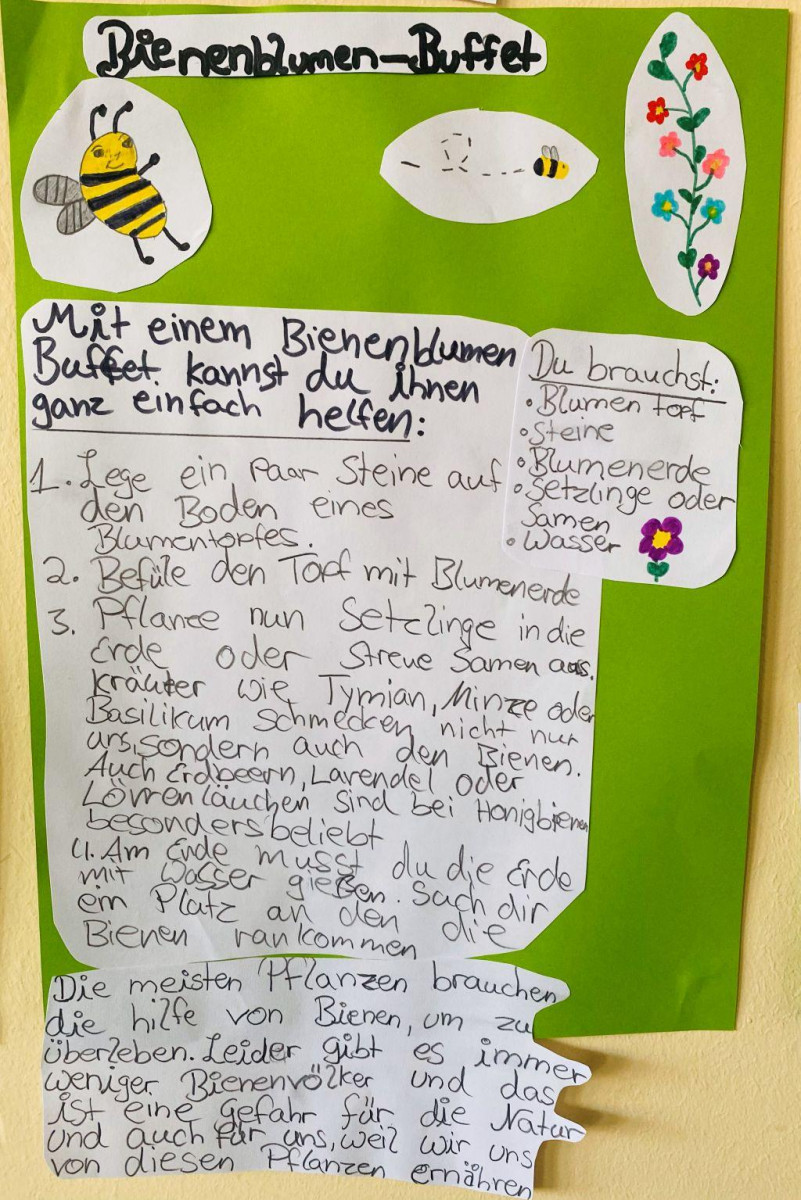 Bienenblumen-Buffet
Mit einem Bienenblumen
Buffet kannst du ihnen
ganz einfach helfen:
1. Lege ein paar Steine auf
den Boden eines
Blumentopfes.
2. Befüle den Topf mit Blumenerde
3. Pflanze nun Setzlinge in die
Erde oder streue Samen aus.
Kräuter wie Tymian, Minze oder
Basilikum schmecken nicht nur
uns, sondern auch den Bienen.
Auch Erdbeern, Lavendel oder
Löwenläuchen sind bei Honigbienen
besonders beliebt
4. Am Ende musst du die Erde
mit Wasser gießen. Such dir
ein Platz an den die
Bienen rankommen
Du brauchst:
• Blumentopf
• Steine
• Blumenerde
• Setzlinge oder
Samen
• Wasser
Die meisten Pflanzen brauchen
die hilfe von Bienen, um zu
überleben. Leider gibt es immer
weniger Bienenvölker und das
ist eine Gefahr für die Natur
und auch für uns, weil wir uns
von diesen Pflanzen ernähren